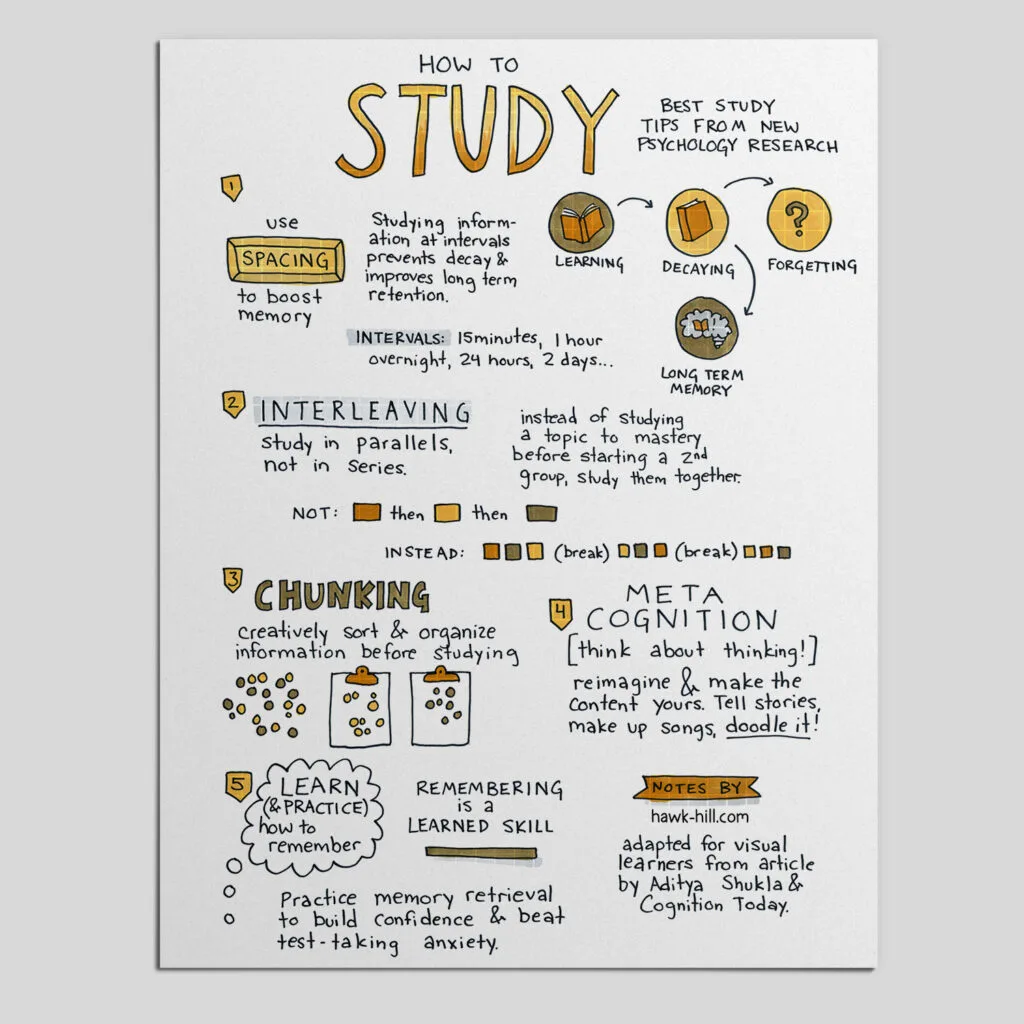 HOW TO
STUDY
BEST STUDY
TIPS FROM NEW
PSYCHOLOGY RESEARCH
1
use
SPACING
to boost
memory
Studying inform-
ation at intervals
prevents decay &
improves long term
retention.
LEARNING
DECAYING
FORGETTING
?
LONG TERM
MEMORY
INTERVALS: 15minutes, 1 hour
overnight, 24 hours, 2 days...
2
INTERLEAVING
study in parallels,
not in series.
instead of studying
a topic to mastery
before starting a 2nd
group, study them together.
NOT: then then
INSTEAD: (break) (break)
3
CHUNKING
creatively sort & organize
information before studying
4
META
COGNITION
[think about thinking!]
reimagine & make the
content yours. Tell stories,
make up songs, doodle it!
5
LEARN
(& PRACTICE)
how to
remember
REMEMBERING
is a
LEARNED SKILL
Practice memory retrieval
to build confidence & beat
test-taking anxiety.
NOTES BY
hawk-hill.com
adapted for visual
learners from article
by Aditya Shukla &
Cognition Today.